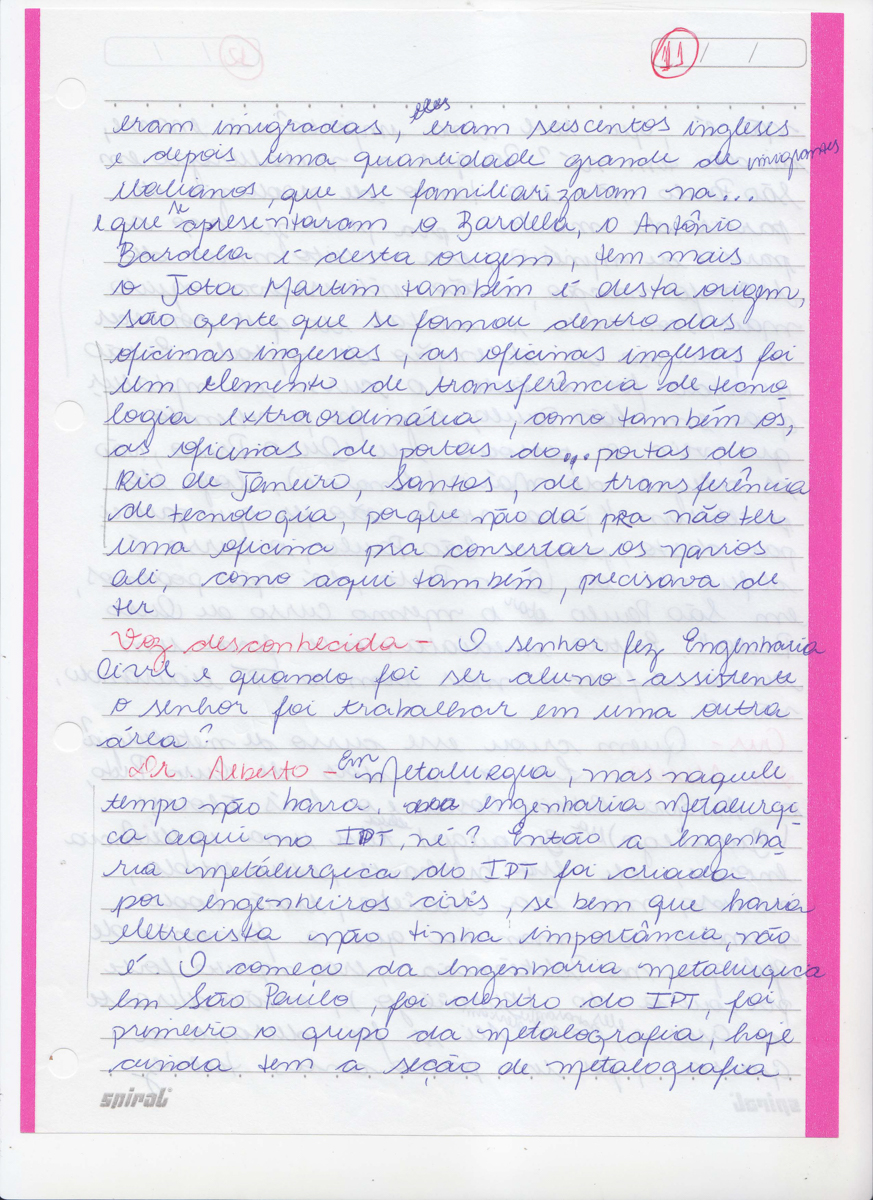 11 / /
eram imigradas, eles eram seiscentos ingleses
e depois uma quantidade grande de imigrantes
italianos, que se familiarizaram na...
e que se apresentaram o Bardela, o Antônio
Bardela é desta origem, tem mais
o Jota Martim também é desta origem,
são gente que se formou dentro das
oficinas inglesas, as oficinas inglesas foi
um elemento de transferência de tecno
logia extraordinária, como também os,
as oficinas de portas do... portas do
Rio de Janeiro, Santos, de transferência
de tecnologia, porque não dá pRa não ter
uma oficina pra consertar os navios
ali, como aqui também, precisava de
ter
Voz desconhecida - O senhor fez Engenharia
Civil e quando foi ser aluno-assistente
o senhor foi trabalhar em uma outra
área?
Dr. Alberto - Em Metalurgia, mas naquele
tempo não havia, engenharia Metalurgi-
ca aqui no IPT, né? Então a engenha-
ria metálurgica do IPT foi criada
por engenheiros civis, se bem que havia
eletrecista não tinha importância, não
é. O começo da engenharia metalurgica
em São Paulo, foi dentro do IPT, foi
primeiro o grupo da metalografia, hoje
ainda tem a seção de metalografia
spiral